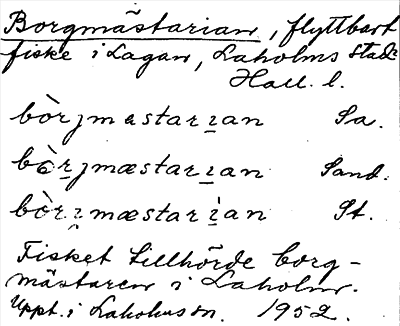 Borgmästarian, flyttbart
fiske i Lagan, Laholms stad
Hall. l.
bòrjmæstarịan Sa.
bòrjmæstarịan Sand.
bòrịmæstarịan St.
Fisket tillhörde borg-
mästaren i Laholm.
Uppt. i Laholm 1952.